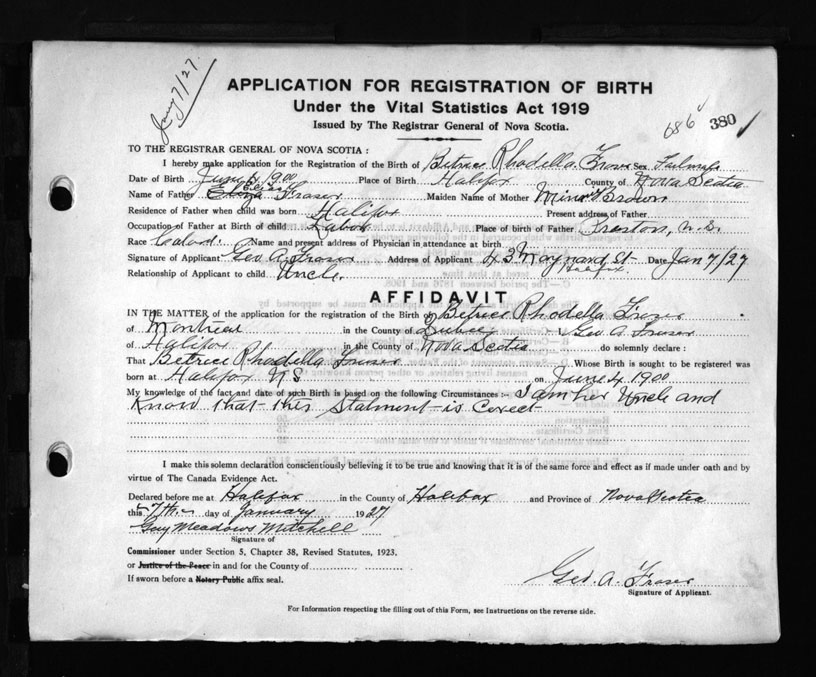 Jany 7/27.
APPLICATION FOR REGISTRATION OF BIRTH
Under the Vital Statistics Act 1919
Issued by The Registrar General of Nova Scotia.
686 380
TO THE REGISTRAR GENERAL OF NOVA SCOTIA :
I hereby make application for the Registration of the Birth of Betrece Rhodella Sex
Date of Birth June 4 1900 Place of Birth Halifax County of Nova Scotia
Name of Father Fraser Maiden Name of Mother Brown
Residence of Father when child was born Halifax Present address of Father
Occupation of Father at Birth of child Labor Place of birth of Father Preston, N.S.
Race Name and present address of Physician in attendance at birth
Signature of Applicant Geo A. Fraser Address of Applicant 43 Maynard St Halifax. Date Jan 7/27
Relationship of Applicant to child Uncle.
AFFIDAVIT
IN THE MATTER of the application for the registration of the Birth of Betrece Rhodella Fraser
of Montreal in the County of Quebec I, Geo A. Fraser
of Halifax in the County of Nova Scotia do solemnly declare :
That Betrece Rhodella Fraser Whose Birth is sought to be registered was
born at Halifax N S on June 4 1900
My knowledge of the fact and date of such Birth is based on the following Circumstances :- I am her Uncle and
Know that this Statment is Corect
I make this solemn declaration conscientiously believing it to be true and knowing that it is of the same force and effect as if made under oath and by
virtue of The Canada Evidence Act.
Declared before me at Halifax in the County of Halifax and Province of Nova Scotia
this 7th day of January 1927
Guy Meadows Mitchell
Signature of
Commissioner under Section 5, Chapter 38, Revised Statutes, 1923.
or Justice of the Peace in and for the County of
If sworn before a Notary Public affix seal.
Geo. A. Fraser
Signature of Applicant.
For Information respecting the filling out of this Form, see Instructions on the reverse side.